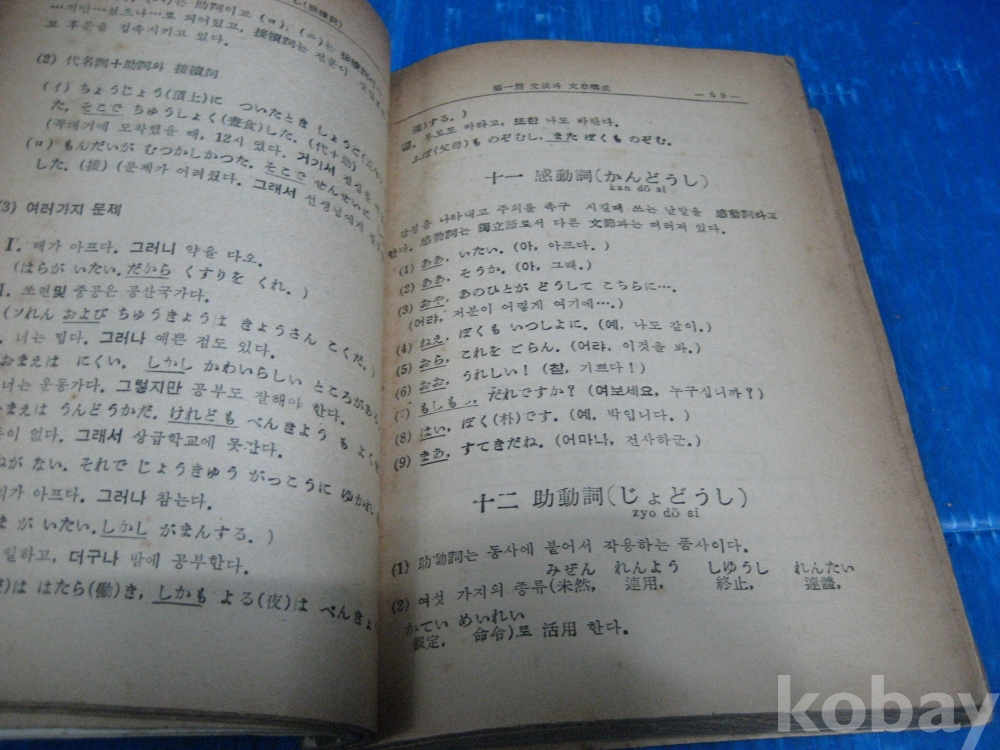 는 助詞이고 (ロ), (ニ)는 接續詞
…지만…섰으나…로 되어있고, 接續詞는 전문이
고 후문을 접속시키고 있다.
(2) 代名詞十助詞와 接續詞
(イ) ちょうじょう(頂上)に ついたとき しょうご(正午)
た. そこで ちゅうしょく(晝食)した. (代十助)
(꼭대기에 도착했을 때, 12시 였다. 거기서 점심을
(ロ) もんだいが むつかしかつた. そこで せんせいに
した. (接) (문제가 어려웠다. 그래서 선생님에게
(3) 여러가지 문제
I. 배가 아프다. 그러니 약을 다오.
(はらが いたい. だから くすりを くれ. )
I. 쏘련및 중공은 공산국가다.
(ソれん および ちゅうきょうは きょうさん こくだ. )
. 너는 밉다. 그러나 예쁜 점도 있다.
おまえは にくい. しかし かわいらしい ところがある.
너는 운동가다. 그렇지만 공부도 잘해야 한다.
まえは うんどうかだ. けれども べんきょう も よく
이 없다. 그래서 상급학교에 못간다.
ねが ない. それで じょうきゅう がっこうに ゆかれ
가 아프다. 그러나 참는다.
ま が いたい. しかし がまんする. )
일하고, 더구나 밤에 공부한다.
は はたら(働)き, しかも よる(夜)は べんきょ
第一篇 文法과 文章構成
— 59 —
する. )
부모도 바라고, 또한 나도 바란다.
ふぼ(父母)も のぞむし, また ぼくも のぞむ.
十一 感動詞(かんどうし)
kan dō si
감정을 나타내고 주의를 촉구 시킬때 쓰는 낱말을 感動詞라고
한다. 感動詞는 獨立語로서 다른 文節과는 떠러져 있다.
(1) ああ, いたい. (아, 아프다. )
(2) ああ, そうか. (아, 그래. )
(3) おや, あのひとが どうして こちらに….
(어랴, 저분이 어떻게 여기에…. )
(4) ねえ, ぼくも いつしよに. (예, 나도 같이. )
(5) おら, これを ごらん. (어랴, 이것을 봐. )
(6) おお, うれしい! (참, 기쁘다! )
(7) もしもし, だれですか? (여보세요, 누구십니까? )
(8) はい, ぼく(朴)です. (예, 박입니다. )
(9) まあ, すてきだね. (어마나, 전사하군. )
十二 助動詞(じょどうし)
zyo dō si
(1) 助動詞는 동사에 붙어서 작용하는 품사이다.
みぜん れんよう しゆうし れんたい
(2) 여섯 가지의 종류(未然, 連用, 終止, 連體,
かてい めいれい
假定, 命令)로 活用 한다.
kobay